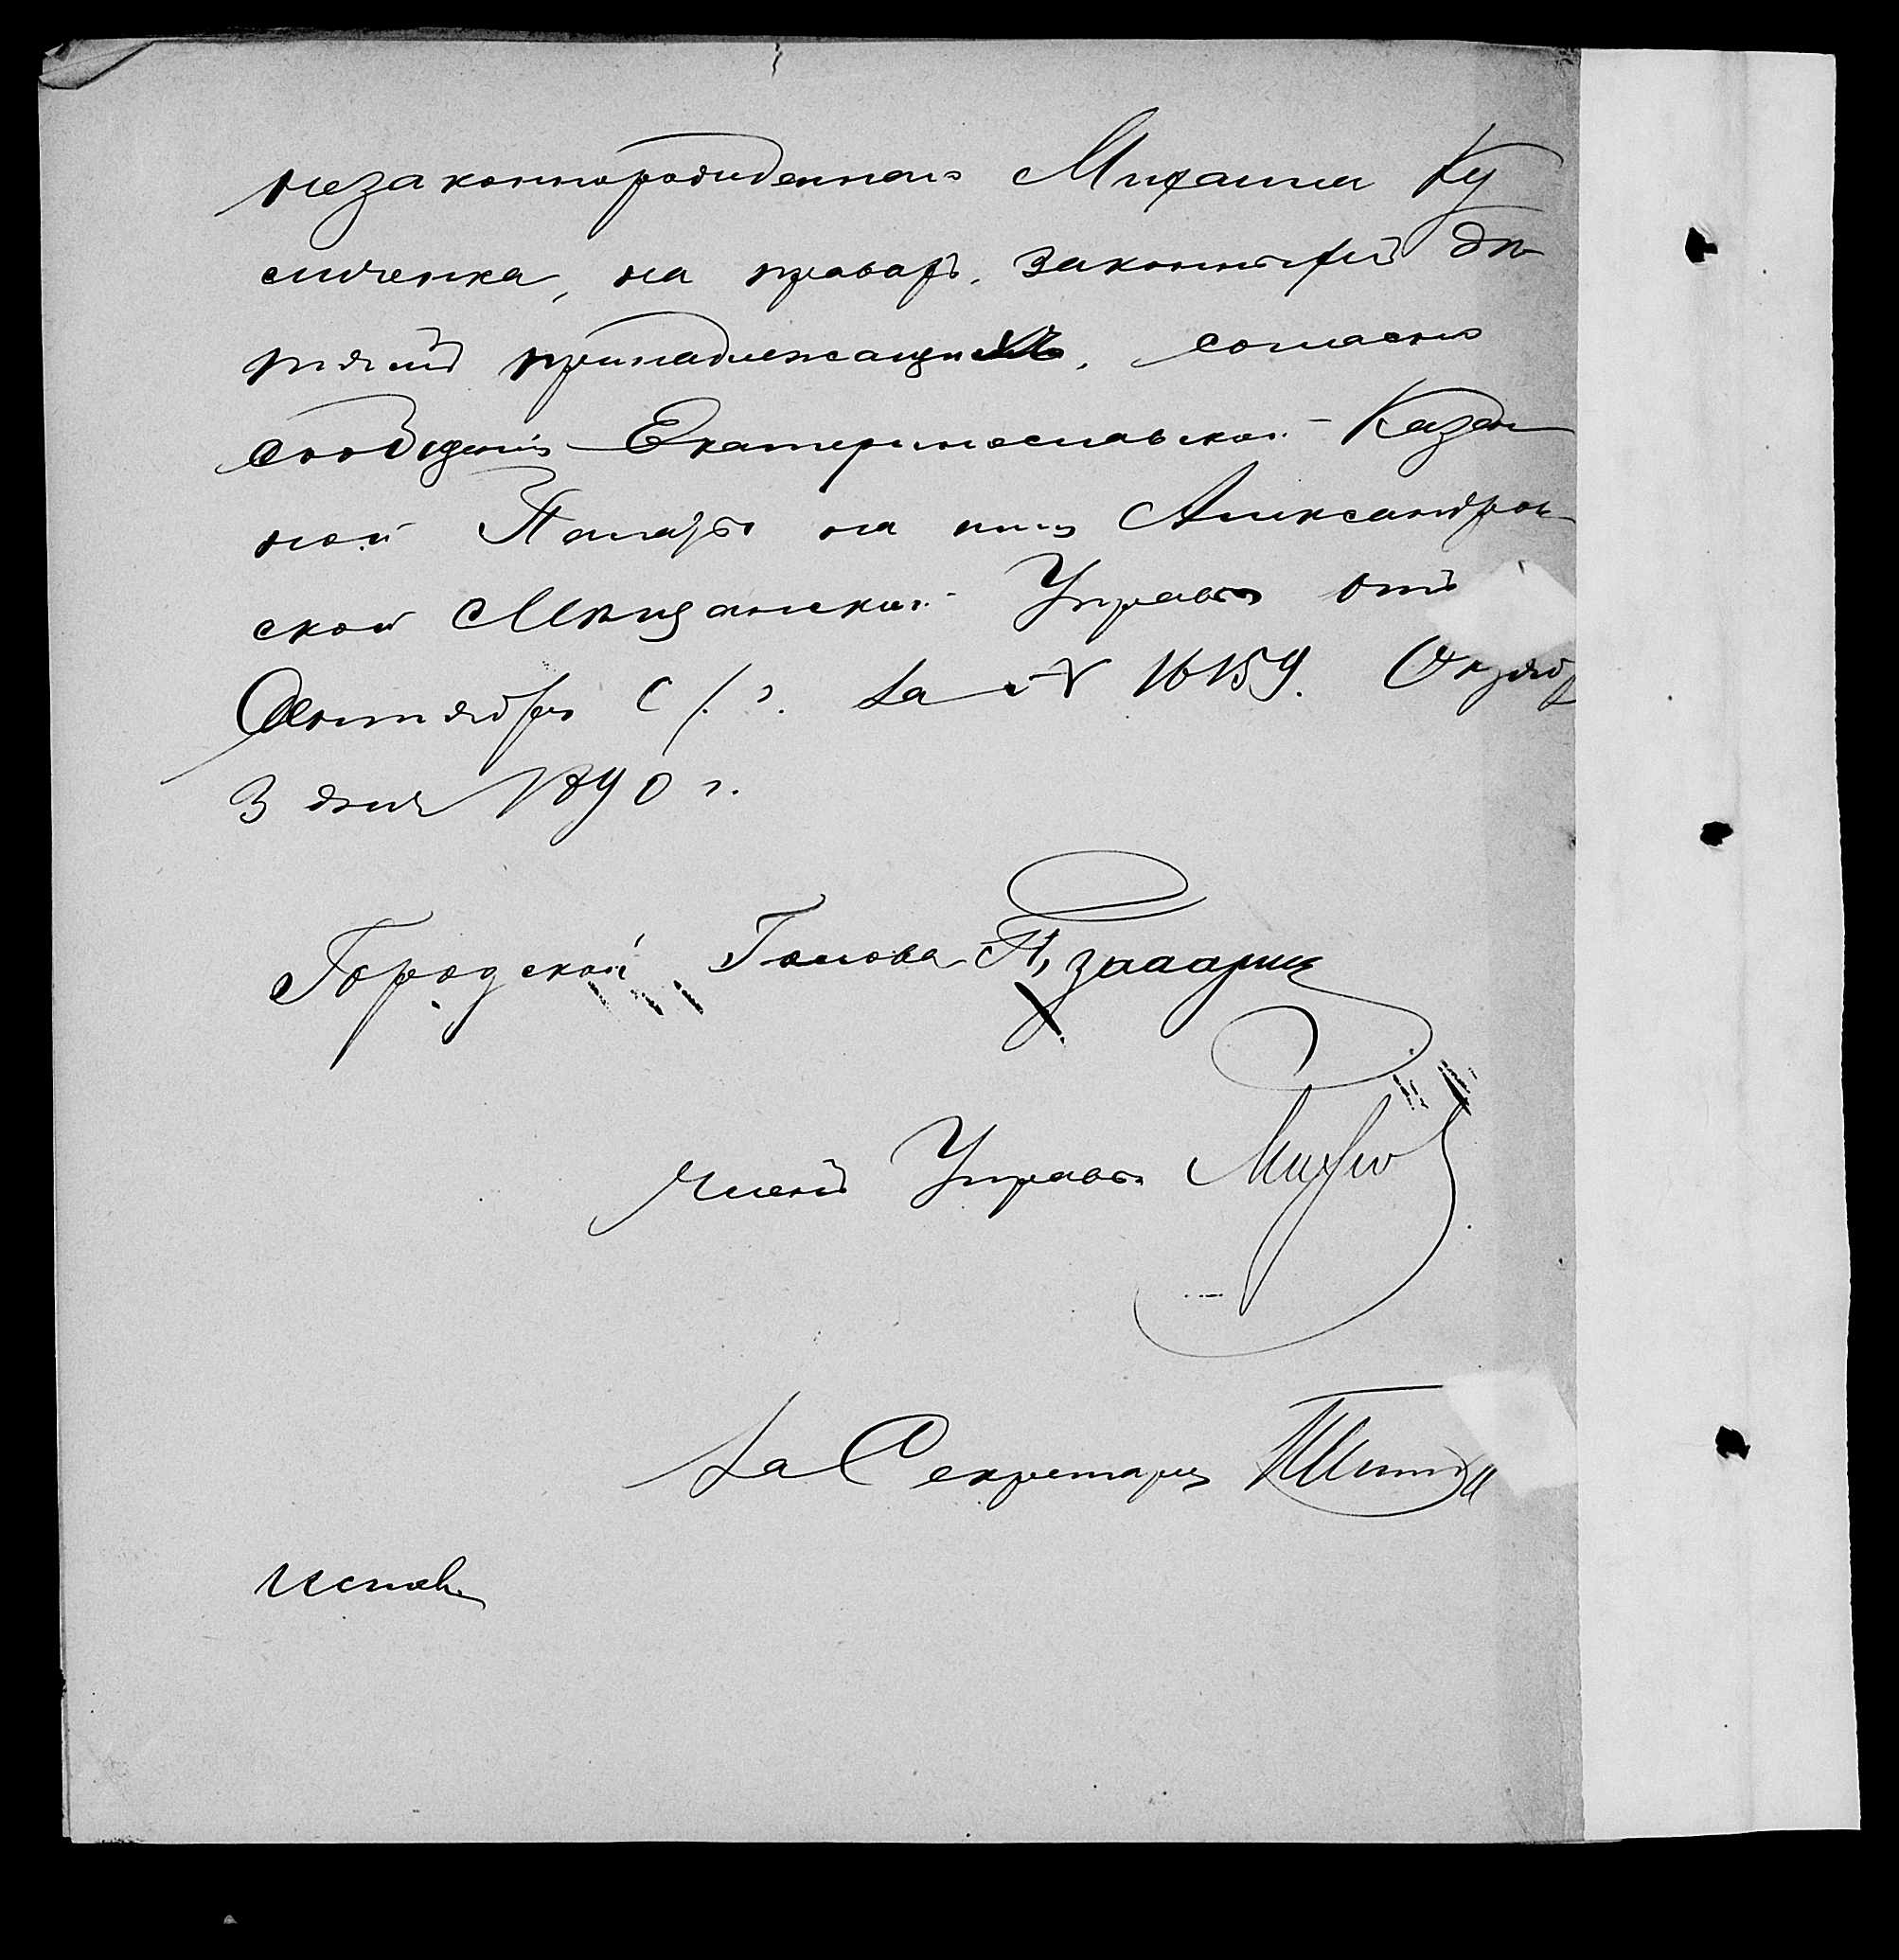 незаконнорожденнаго Михаила Ку
сличенка, на правахъ законныхъ дѣ
тямъ принадлежащихъ, согласно
сообщенія Екатеринославской Казен
ной Палаты на имя Александров
ской Мѣщанской Управы отъ
Сентября с/г. за № 16159. Октяб
3 дня 1890 г.
Городской Голова
Членъ Управы
За Секретаря